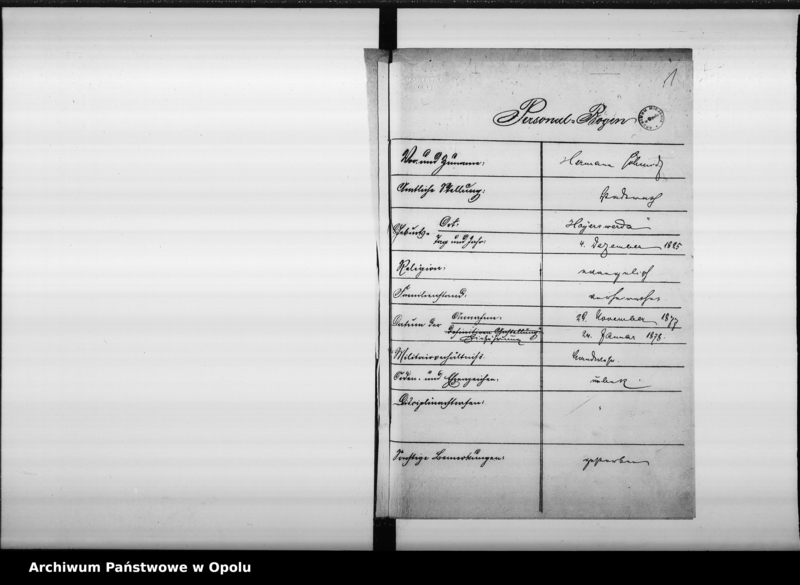 1
Personal-Bogen
Vor- und Zuname: Hermann
Amtliche Stellung:
Geburts- Ort: Hoyerswerda
Tag und Jahr: 4. Dezember
Religion: evangelisch
Familienstand: verheirathet
Datum der Annahme: 28. November 1877
definitiven Anstellung 24. Januar 1878.
Militairverhältniß: Landwehr.
Orden- und Ehrenzeichen: unbek.
Disciplinarstrafen:
Sonstige Bemerkungen: gestorben
Archiwum Państwowe w Opolu